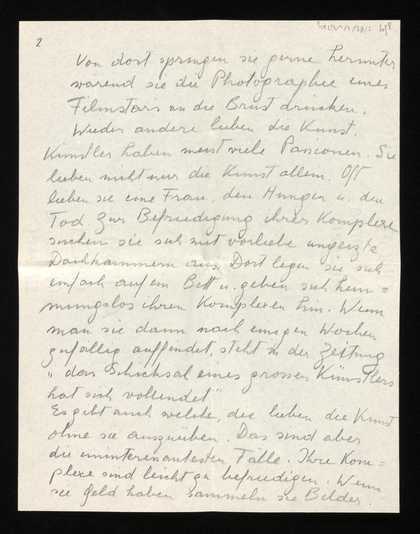 2
Von dort springen sie gerne herunter
wärend sie die Photographie eines
Filmstars an die Brust drücken.
Wieder andere lieben die Kunst.
Künstler haben meist viele Passionen. Sie
lieben nicht nur die Kunst allein. Oft
lieben sie eine Frau, den Hunger u. den
Tod. Zur Befriedigung ihrer Komplexe
suchen sie sich mit vorliebe ungeizte
Dachkammern aus. Dort legen sie sich
einfach auf ein Bett u. geben sich hem=
mungslos ihren Komplexen hin. Wenn
man sie dann nach einigen Wochen
zufällig auffindet, steht in der Zeitung
„das Schicksal eines grossen Künstlers
hat sich vollendet"
Es gibt auch welche, die lieben die Kunst
ohne sie auszuüben. Das sind aber
die uninteresantesten Fälle. Ihre Kom=
plexe sind leicht zu befriedigen. Wenn
sie Geld haben sammeln sie Bilder.